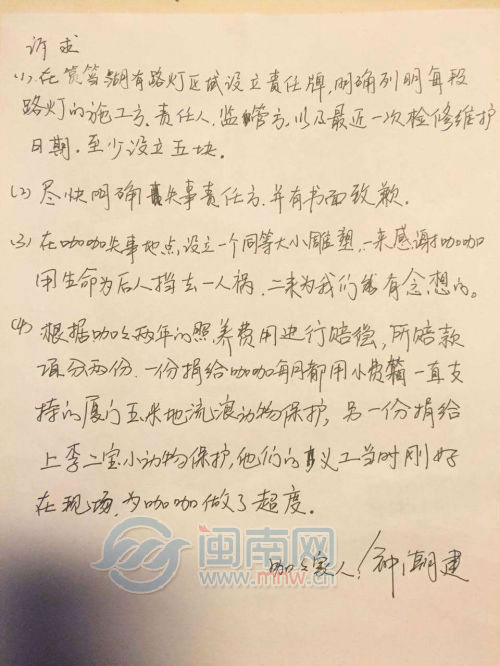 诉求
(1). 在筼筜湖有路灯区域设立责任牌,明确列明每段
路灯的施工方、责任人、监管方,以及最近一次检修维护
日期,至少设立五块。
(2) 尽快明确失事责任方,并有书面致歉。
(3) 在咖咖失事地点,设立一个同等大小雕塑,一来感谢咖咖
用生命为后人挡去一人祸,二来为我们能有念想的。
(4) 根据咖咖两年的照养费用进行赔偿,所赔款
项分两份,一份捐给咖咖每月都用小费箱一直支
持的厦门玉米地流浪动物保护,另一份捐给
上李二宝小动物保护,他们的义工当时刚好
在现场,为咖咖做了超度。
闽南网
www.mnw.cn
咖咖家人:钟潮建